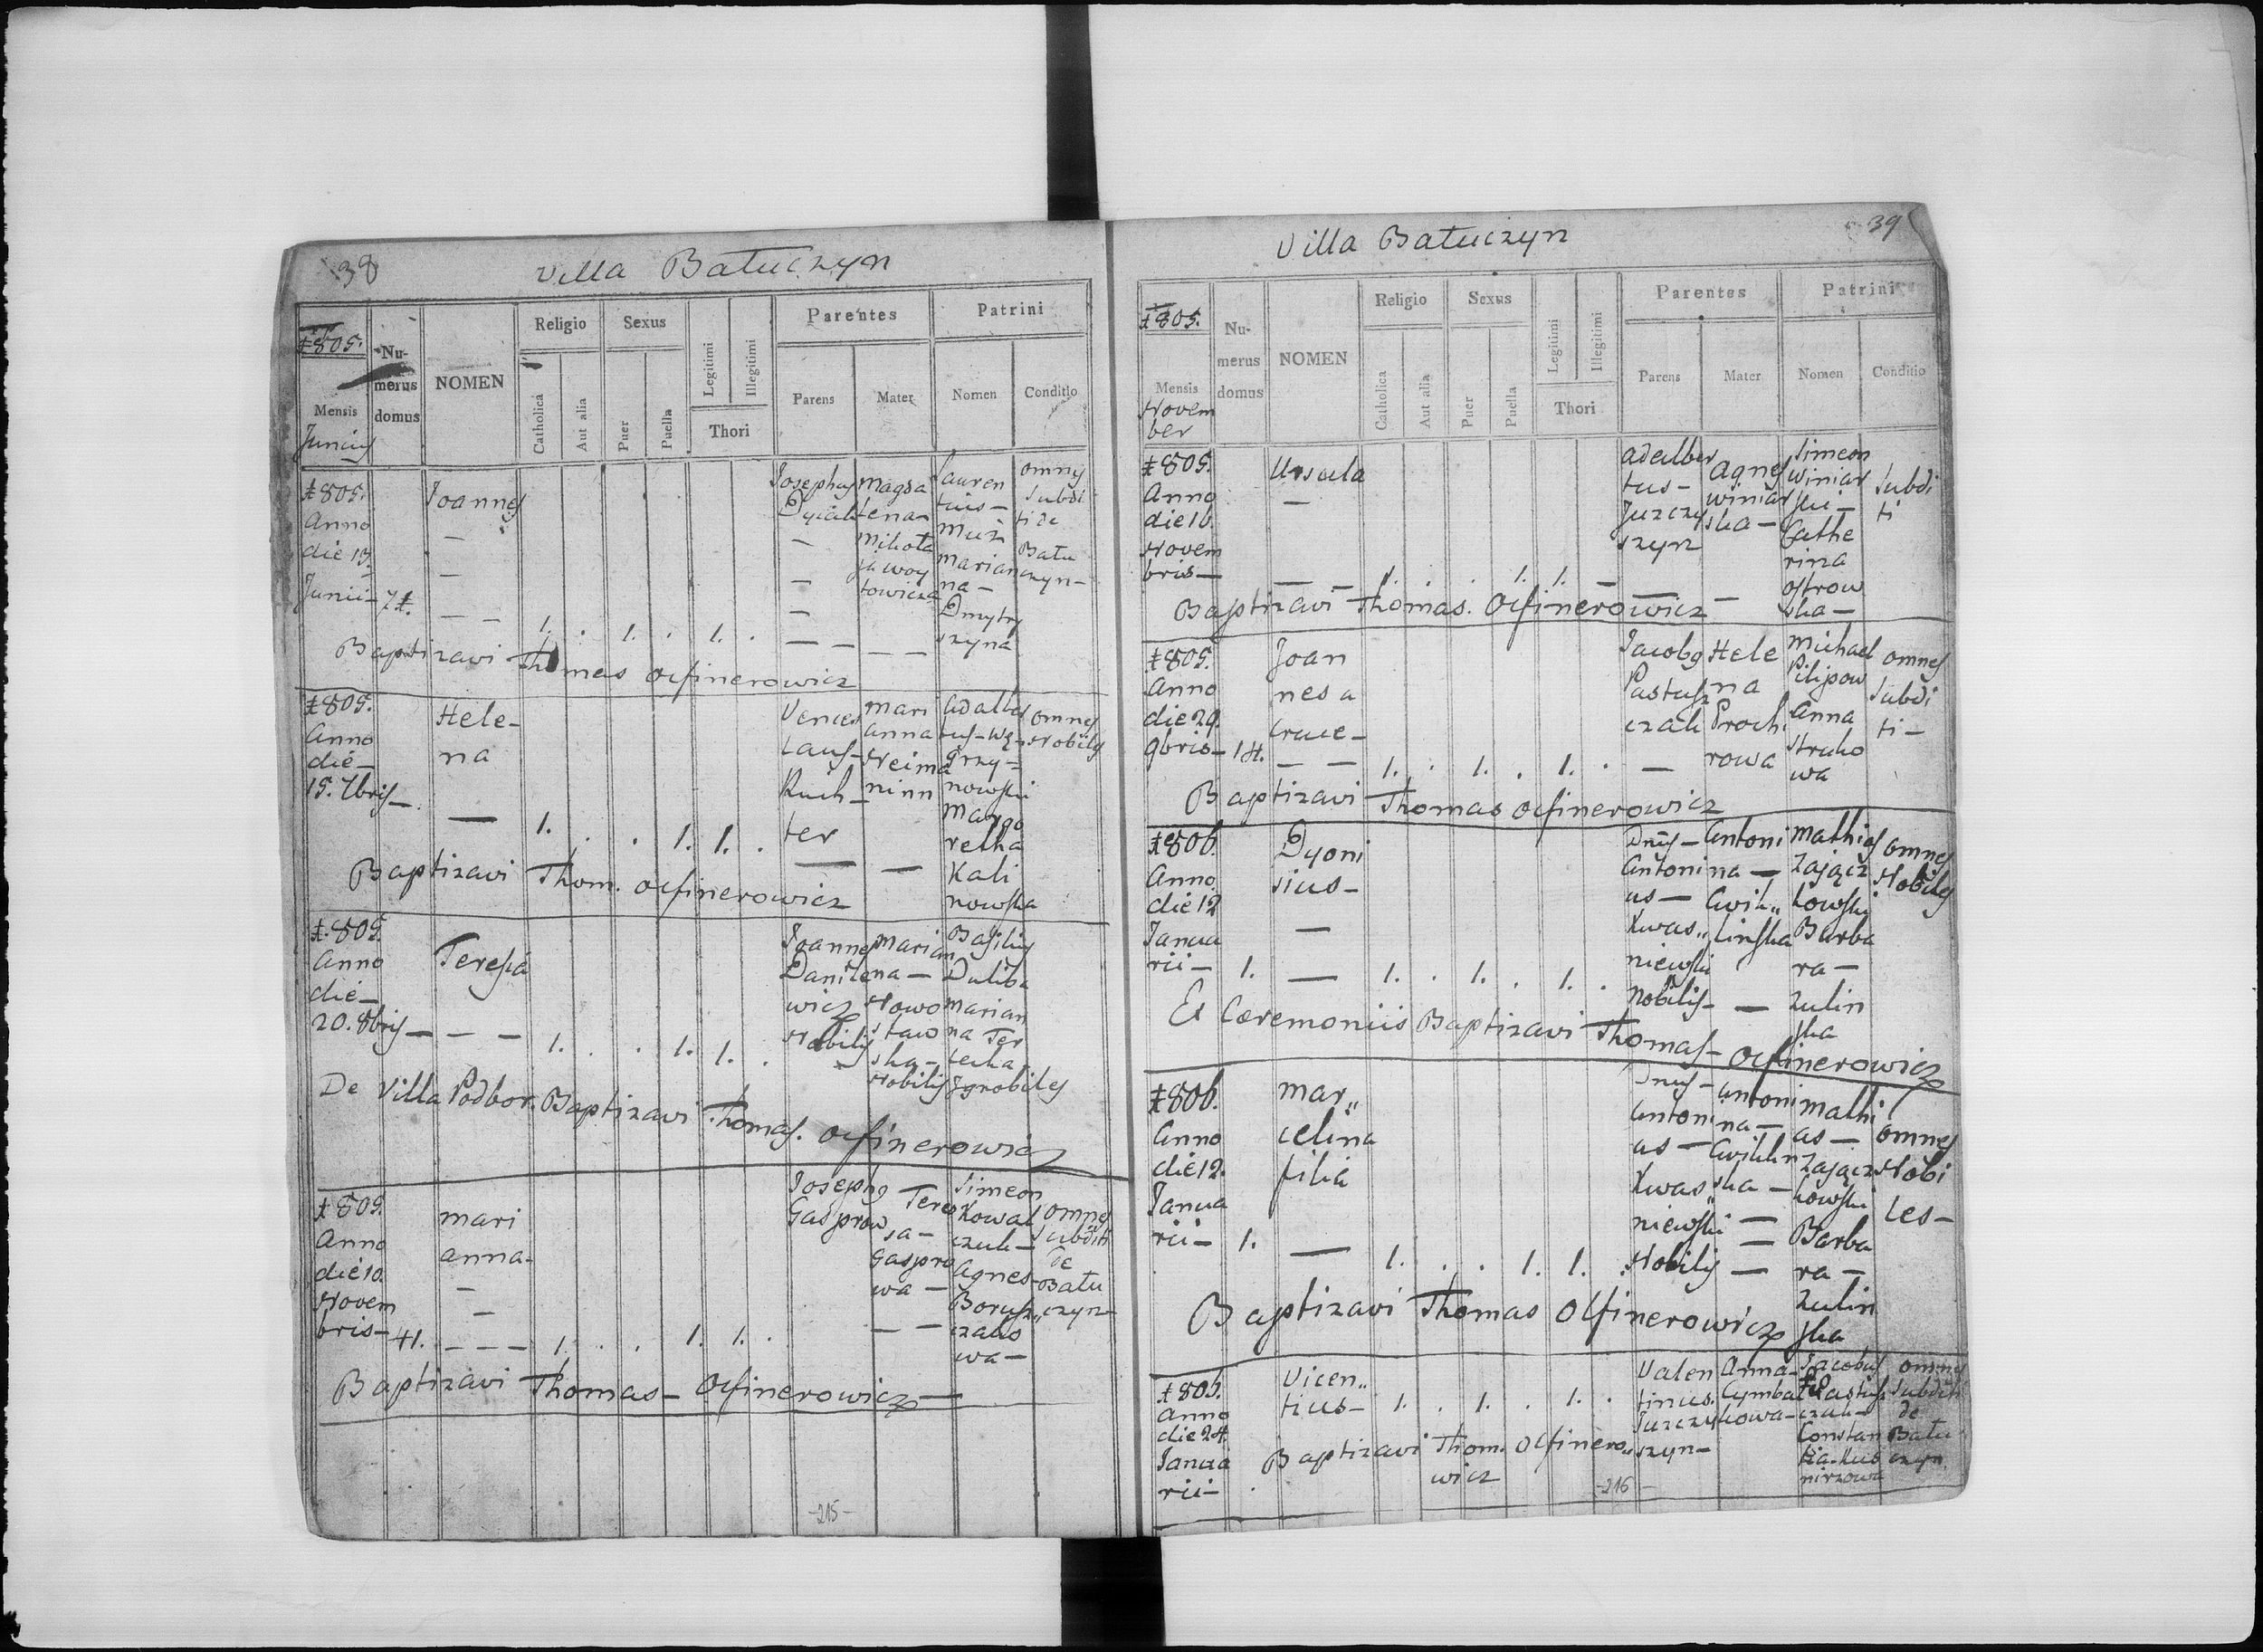 38
Villa Batuczyn
1805.
Numerus domus
NOMEN
Religio
Sexus
Legitimi
Illegitimi
Parentes
Patrini
Mensis
Catholica
Aut alia
Puer
Puella
Thori
Parens
Mater
Nomen
Conditio
Junius
1805.
Anno
die 13.
Junii —
Joannes
1. . 1. . 1. .
Josephus
Magda
lena —
Mikoła
Lauren
tius —
Marian
na —
Dmytry
szyna
omnes
Subdi
ti de
Batu
czyn —
Baptizavi Thomas Ocfinerowicz
1805.
Anno
die —
15. 7bris —
Hele-
na
1. . . 1. 1. .
Vences
laus —
Rich —
ter
Mari
anna
Neima
ninn
Adalber
tus — Wę-
grzy =
nowski
Marga
retha
Kali
nowska
omnes
Nobiles
Baptizavi Thom. Ocfinerowicz
1805.
Anno
die —
20. 8bris —
Teresia
1. . . 1. 1. .
Joannes
Danile
wicz
Nobilis
Marian
na —
Nowo
staw
ska —
Nobilis
Basilius
Duliba
Marian
na Ter
lecka
Ignobiles
De Villa Podbor. Baptizavi Thomas. Ocfinerowicz
1805.
Anno
die 10.
Novem
bris — 41.
Mari
anna —
1. . . 1. 1. .
Josephg
Gasprow
Tere
sa —
Gaspro
wa —
Simeon
Kowal
czuk —
Agnes —
Borusz„
czako
wa —
omnes
Subditi
de
Batu
czyn
Baptizavi Thomas — Ocfinerowicz —
-215-
39
Villa Batuczyn
1805.
Numerus domus
NOMEN
Religio
Sexus
Legitimi
Illegitimi
Parentes
Patrini
Mensis
Catholica
Aut alia
Puer
Puella
Thori
Parens
Mater
Nomen
Conditio
Novem
ber
1805.
Anno
die 16.
Novem
bris —
Ursula
1. . . 1. 1. —
Adalber
tus —
Jurczy
szyn
Agnes
Winiar
ska —
Simeon
Winiar
ski —
Cathe
rina
Ostrow
ska —
Subdi
ti
Baptizavi Thomas. Ocfinerowicz —
1805.
Anno
die 29.
9bris — 14.
Joan
nes a
Cruce —
1. . 1. . 1. .
Jacobg
Pastusz
czak
Hele
na
Proch
rowa
Michael
Pilipow
Anna
Struko
wa
omnes
Subdi
ti —
Baptizavi Thomas Ocfinerowicz
1806.
Anno
die 12
Janua
rii — 1.
Dyoni
sius —
1. . 1. . 1. .
Dnus —
Antoni
us —
Kwas„
niewski
Nobilis —
Antoni
na —
Cwik„
linska
Mathias
Zającz
kowski
Barba
ra —
Zulin
ska
omnes
Nobiles
Et Cæremoniis Baptizavi Thomas — Ocfinerowicz
1806.
Anno
die 12.
Janua
rii — 1.
Mar„
celina
filia
1. . . 1. 1. .
Dnus —
Antoni
us —
Kwas„
niewski
Nobilis
Antoni
na —
Cwiklin
ska —
Mathi
as —
Zającz
kowski
Barba
ra —
Zulin
ska
omnes
Nobi
les —
Baptizavi Thomas Ocfinerowicz
1806.
Anno
die 24.
Janua
rii —
Vicen„
tius —
1. . 1. . 1. .
Valen
tinus.
Jurczy
szyn —
Anna —
Cymbal
kowa —
Jacobus
Pastusz
czuk —
Constan
tia
omnes
Subditi
de
Batu
czyn
Baptizavi Thom. Ocfinero„
wicz
-216-